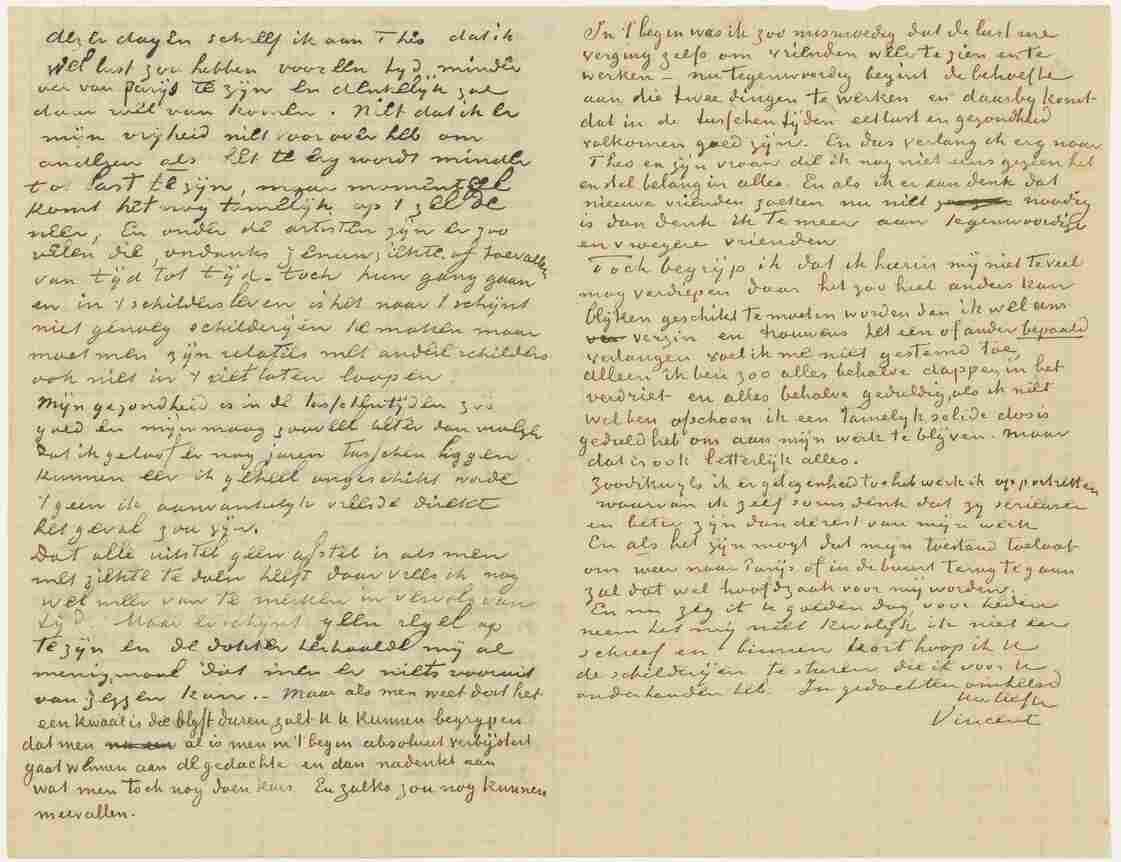 dezer dagen schreef ik aan Theo dat ik
wel lust zou hebben voor een tyd minder
ver van Parijs te zijn en denkelijk zal
daar wel van komen. Niet dat ik er
mijn vrijheid niet voor over heb om
anderen als het te erg wordt minder
tot last te zijn, maar momenteel
komt het nog tamelijk op 't zelfde
neer, En onder de artisten zijn er zoo
velen die, ondanks zenuwziekte of toevallen
van tijd tot tijd – toch hun gang gaan
en in 't schildersleven is het naar 't schijnt
niet genoeg schilderijen te maken maar
moet men zijn relaties met andere schilders
ook niet in 't riet laten loopen.
Mijn gezondheid is in de tusschentijden zoo
goed en mijn maag zooveel beter dan vroeger
dat ik geloof er nog jaren tusschen liggen
kunnen eer ik geheel ongeschikt worde
't geen ik aanvankelyk vreesde direkt
het geval zou zijn.
Dat alle uitstel geen afstel is als men
met ziekte te doen heeft daar vrees ik nog
wel meer van te merken in vervolg van
tijd. Maar er schynt geen regel op
te zijn en de dokter herhaalde mij al
menigmaal dat men er niets vooruit
van zeggen kan.. Maar als men weet dat het
een kwaal is die blyft duren zult U U kunnen begrypen
dat men al is men in 't begin absoluut verbijsterd
gaat wennen aan de gedachte en dan nadenkt aan
wat men toch nog doen kan. En zulks zou nog kunnen
meevallen.
In 't begin was ik zoo mismoedig dat de lust me
verging zelfs om vrienden weer te zien en te
werken – nu tegenwoordig begint de behoefte
aan die twee dingen te werken en daarby komt
dat in de tusschentijden eetlust en gezondheid
volkomen goed zijn. En dus verlang ik erg naar
Theo en zijn vrouw die ik nog niet eens gezien heb
en stel belang in alles. En als ik er aan denk dat
nieuwe vrienden zoeken nu niet noodig
is dan denk ik te meer aan tegenwoordige
en vroegere vrienden
Toch begrijp ik dat ik hierin mij niet te veel
mag verdiepen daar het zoo heel anders kan
blijken geschikt te moeten worden dan ik wel eens
verzin en trouwens tot een of ander bepaald
verlangen voel ik me niet gestemd toe,
alleen ik ben zoo alles behalve dapper in het
verdriet en alles behalve geduldig, als ik niet
wel ben ofschoon ik een tamelyk solide dosis
geduld heb om aan mijn werk te blijven. Maar
dat is ook letterlijk alles.
Zoodikwyls ik er gelegenheid toe heb werk ik op portretten
waarvan ik zelf soms denk dat zy serieuser
en beter zijn dan de rest van mijn werk
En als het zijn mogt dat mijn toestand toelaat
om weer naar Parijs of in de buurt terug te gaan
zal dat wel hoofdzaak voor mij worden.
En nu zeg ik U goeden dag, voor heden
neem het mij niet kwalijk ik niet eer
schreef en binnen kort hoop ik U
de schilderijen te sturen die ik voor U
onderhanden heb. In gedachten omhelsd
Uw liefh
Vincent